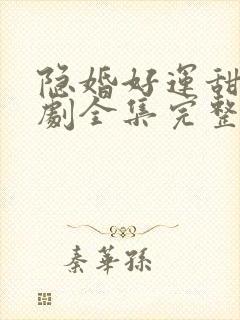 隐婚好運甜
劇全集完整
秦華孫